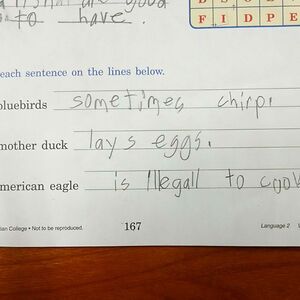 are good
to have.
F I D P E
each sentence on the lines below.
bluebirds sometimes chirp.
mother duck lays eggs.
merican eagle is illegall to cook
ian College • Not to be reproduced. 167 Language 2